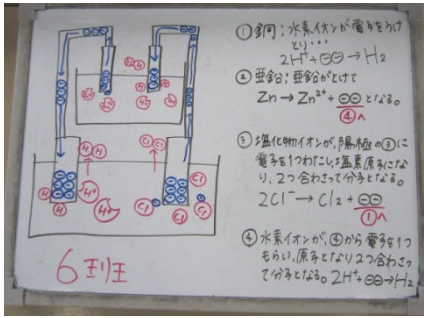 ① 銅：水素イオンが電子をうけ
とり…
2H⁺+⊖⊖→H₂
② 亜鉛：亜鉛がとけて
Zn→Zn²⁺+⊖⊖となる。
④へ
③ 塩化物イオンが、陽極の③に
電子を1つわたし、塩素原子にな
り、2つ合わさって分子となる。
2Cl⁻→Cl₂+⊖⊖
①へ
④ 水素イオンが、④から電子を1つ
もらい、原子となり2つ合わさっ
て分子となる。2H⁺+⊖⊖→H₂
H
H
H
H⁺
H⁺
Cl
Cl
Cl
Cl
Cl
6王班王